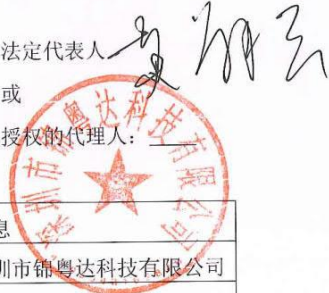 法定代表人
或
授权的代理人：
深圳市锦粤达科技有限公司
息
圳市锦粤达科技有限公司